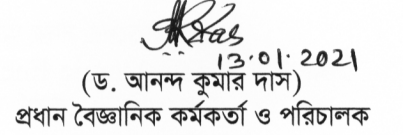 13.01.2021
(ড. আনন্দ কুমার দাস)
প্রধান বৈজ্ঞানিক কর্মকর্তা ও পরিচালক